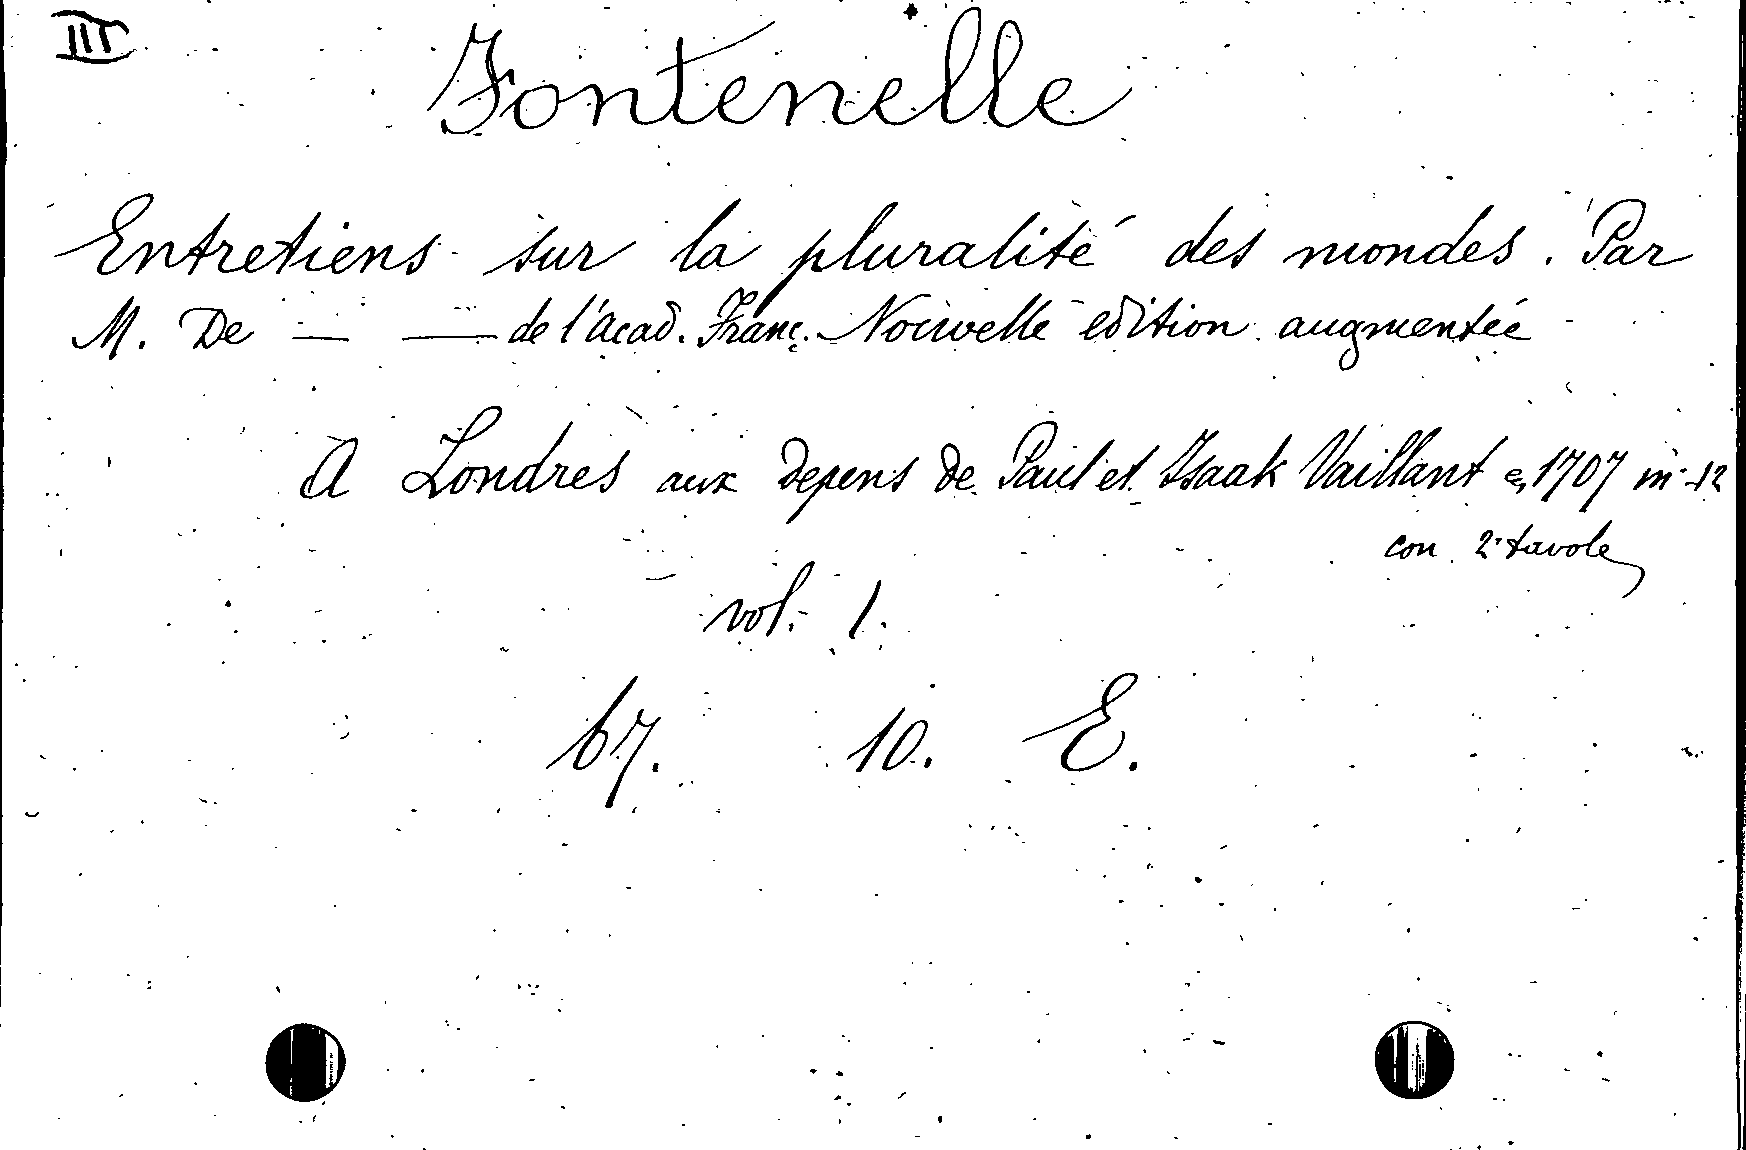 III
Fontenelle
Entretiens sur la pluralité des mondes. Par
M. De — — de l'acad. Franç. Nouvelle edition augmentée
A Londres aux depens de Paul et Isaak Vaillant 1707 in-12
con 2 tavole
vol. 1.
67. 10. E.